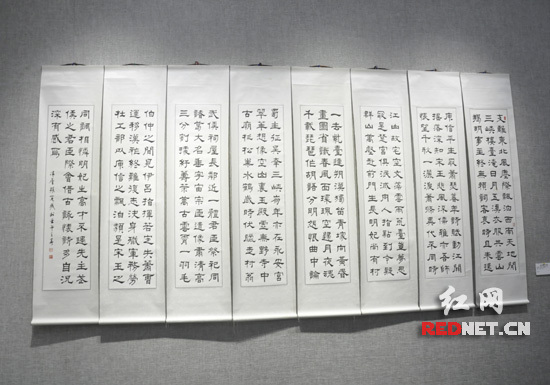 支離東北風塵際飄泊西南天地間
三峽樓臺淹日月五溪衣服共雲山
羯胡事主終無賴詞客哀時且未還
庾信平生最蕭瑟暮年詩賦動江關
搖落深知宋玉悲風流儒雅亦吾師
悵望千秋一灑淚蕭條異代不同時
江山故宅空文藻雲雨荒臺豈夢思
最是楚宮俱泯滅舟人指點到今疑
群山萬壑赴荊門生長明妃尚有村
一去紫臺連朔漠獨留青塚向黃昏
畫圖省識春風面環珮空歸月夜魂
千載琵琶作胡語分明怨恨曲中論
蜀主征吳幸三峽崩年亦在永安宮
翠華想像空山裏玉殿虛無野寺中
古廟杉松巢水鶴歲時伏臘走村翁
武侯祠屋長鄰近一體君臣祭祀同
諸葛大名垂宇宙宗臣遺像肅清高
三分割據紆籌策萬古雲霄一羽毛
伯仲之間見伊呂指揮若定失蕭曹
運移漢祚終難復志決身殲軍務勞
杜工部以庾信之飄泊頗是宋玉之
明妃生富才不遇先主
侯之君臣際會借古詠懷詩多自況
深有感焉
红网
REDNET.CN